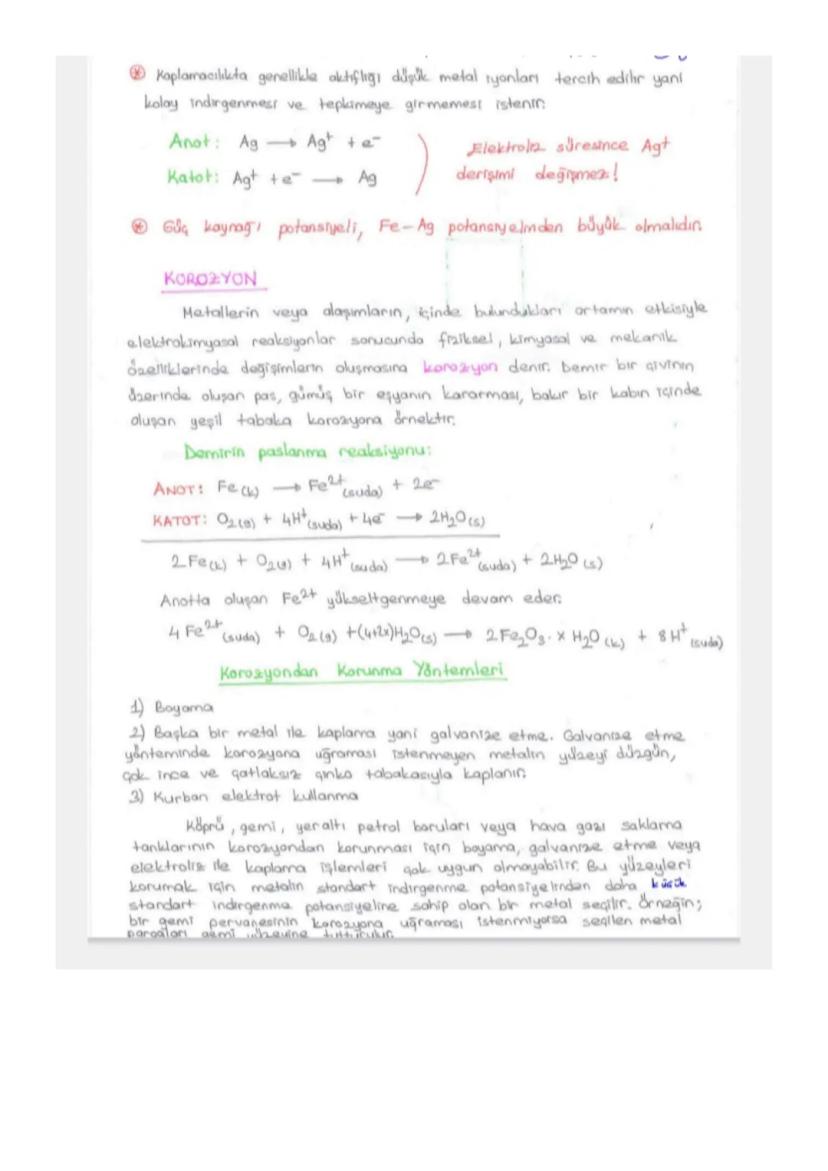 ⊛ Kaplamacılıkta genellikle aktifliği düşük metal iyonları tercih edilir yani
kolay indirgenmesi ve tepkimeye girmemesi istenir.
Anot: Ag → Ag⁺ + e⁻
Katot: Ag⁺ + e⁻ → Ag
Elektroliz süresince Ag⁺
derişimi değişmez!
⊛ Güç kaynağı potansiyeli, Fe-Ag potansiyelinden büyük olmalıdır.
KOROZYON
Metallerin veya alaşımların, içinde bulundukları ortamın etkisiyle
elektrokimyasal reaksiyonlar sonucunda fiziksel, kimyasal ve mekanik
özelliklerinde değişimlerin oluşmasına korozyon denir. Demir bir çivinin
üzerinde oluşan pas, gümüş bir eşyanın kararması, bakır bir kabın içinde
oluşan yeşil tabaka korozyona örnektir.
Demirin paslanma reaksiyonu:
ANOT: Fe(k) → Fe²⁺(suda) + 2e⁻
KATOT: O₂(g) + 4H⁺(suda) + 4e⁻ → 2H₂O(s)
2Fe(k) + O₂(g) + 4H⁺(suda) → 2Fe²⁺(suda) + 2H₂O(s)
Anotta oluşan Fe²⁺ yükseltgenmeye devam eder.
4Fe²⁺(suda) + O₂(g) + (4+2x)H₂O(s) → 2Fe₂O₃·xH₂O(k) + 8H⁺(suda)
Korozyondan Korunma Yöntemleri
1) Boyama
2) Başka bir metal ile kaplama yani galvanize etme. Galvanize etme
yönteminde korozyona uğraması istenmeyen metalin yüzeyi düzgün,
çok ince ve çatlaksız çinko tabakasıyla kaplanır.
3) Kurban elektrot kullanma
Köprü, gemi, yer altı petrol boruları veya hava gazı saklama
tanklarının korozyondan korunması için boyama, galvanize etme veya
elektroliz ile kaplama işlemleri çok uygun olmayabilir. Bu yüzeyleri
korumak için metalin standart indirgenme potansiyelinden daha küçük
standart indirgenme potansiyeline sahip olan bir metal seçilir. Örneğin;
bir gemi pervanesinin korozyona uğraması istenmiyorsa seçilen metal
parçaları gemi yüzeyine tutturulur.